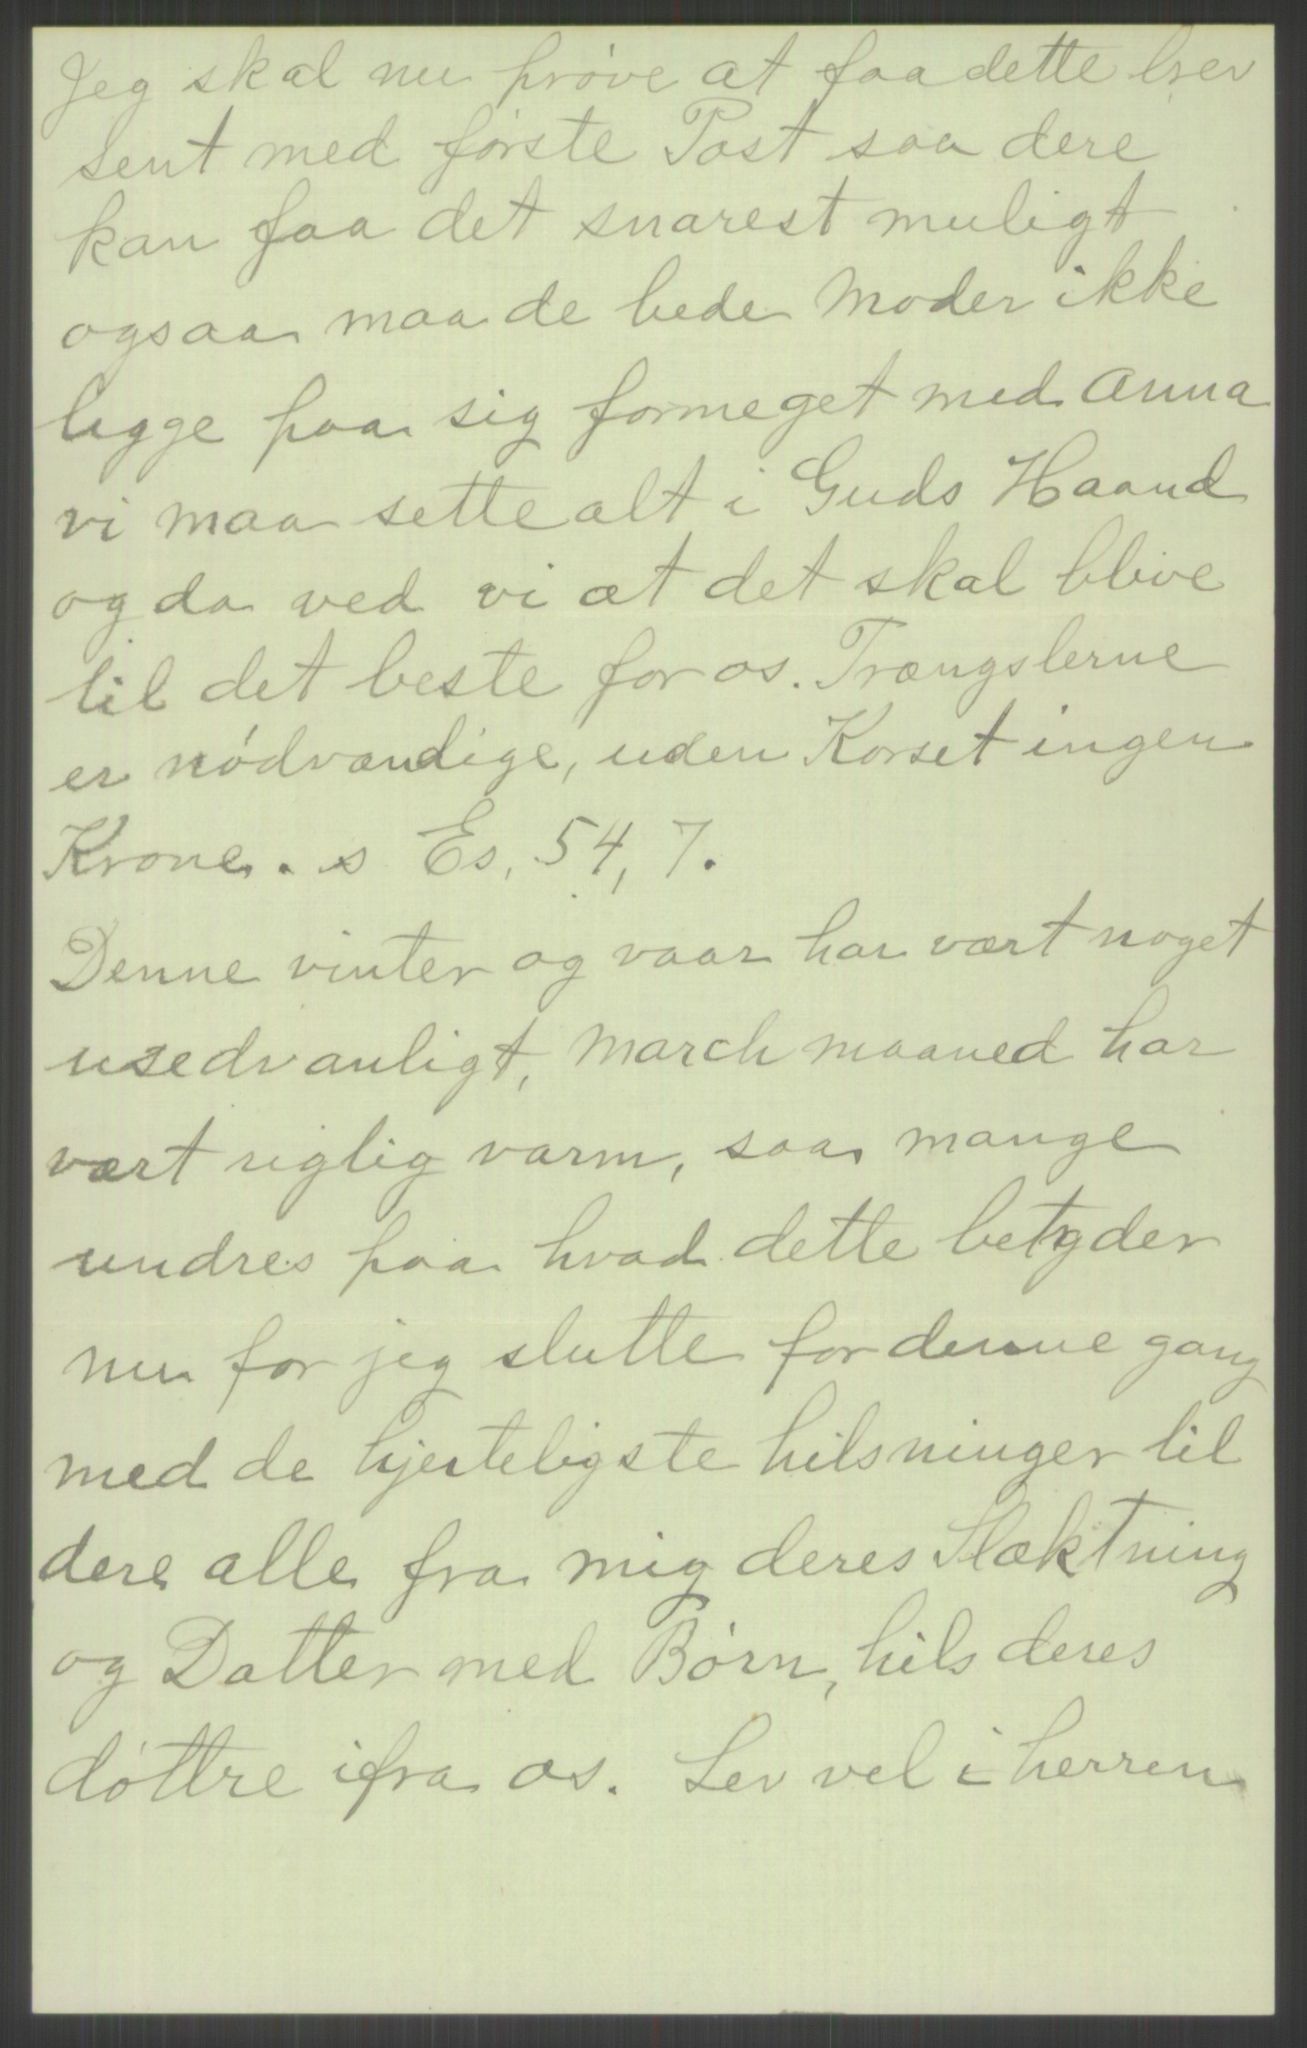 Jeg skal nu prøve at faa dette brev
sent med første Post saa dere
kan faa det snarest muligt
ogsaa maa de bede Moder ikke
legge paa sig formeget med Anna
vi maa sette alt i Guds Haand
og da ved vi at det skal blive
til det beste for os. Trængslerne
er nødvændige, uden Korset ingen
Krone. s Es, 54, 7.
Denne vinter og vaar har vært noget
usedvanligt, March maaned har
vært riglig varm, saa mange
undres paa hvad dette betyder
nu for jeg slutte for denne gang
med de hjerteligste hilsninger til
dere alle fra mig deres Slæktning
og Datter med Børn, hils deres
døttre ifra os. Lev vel i herren